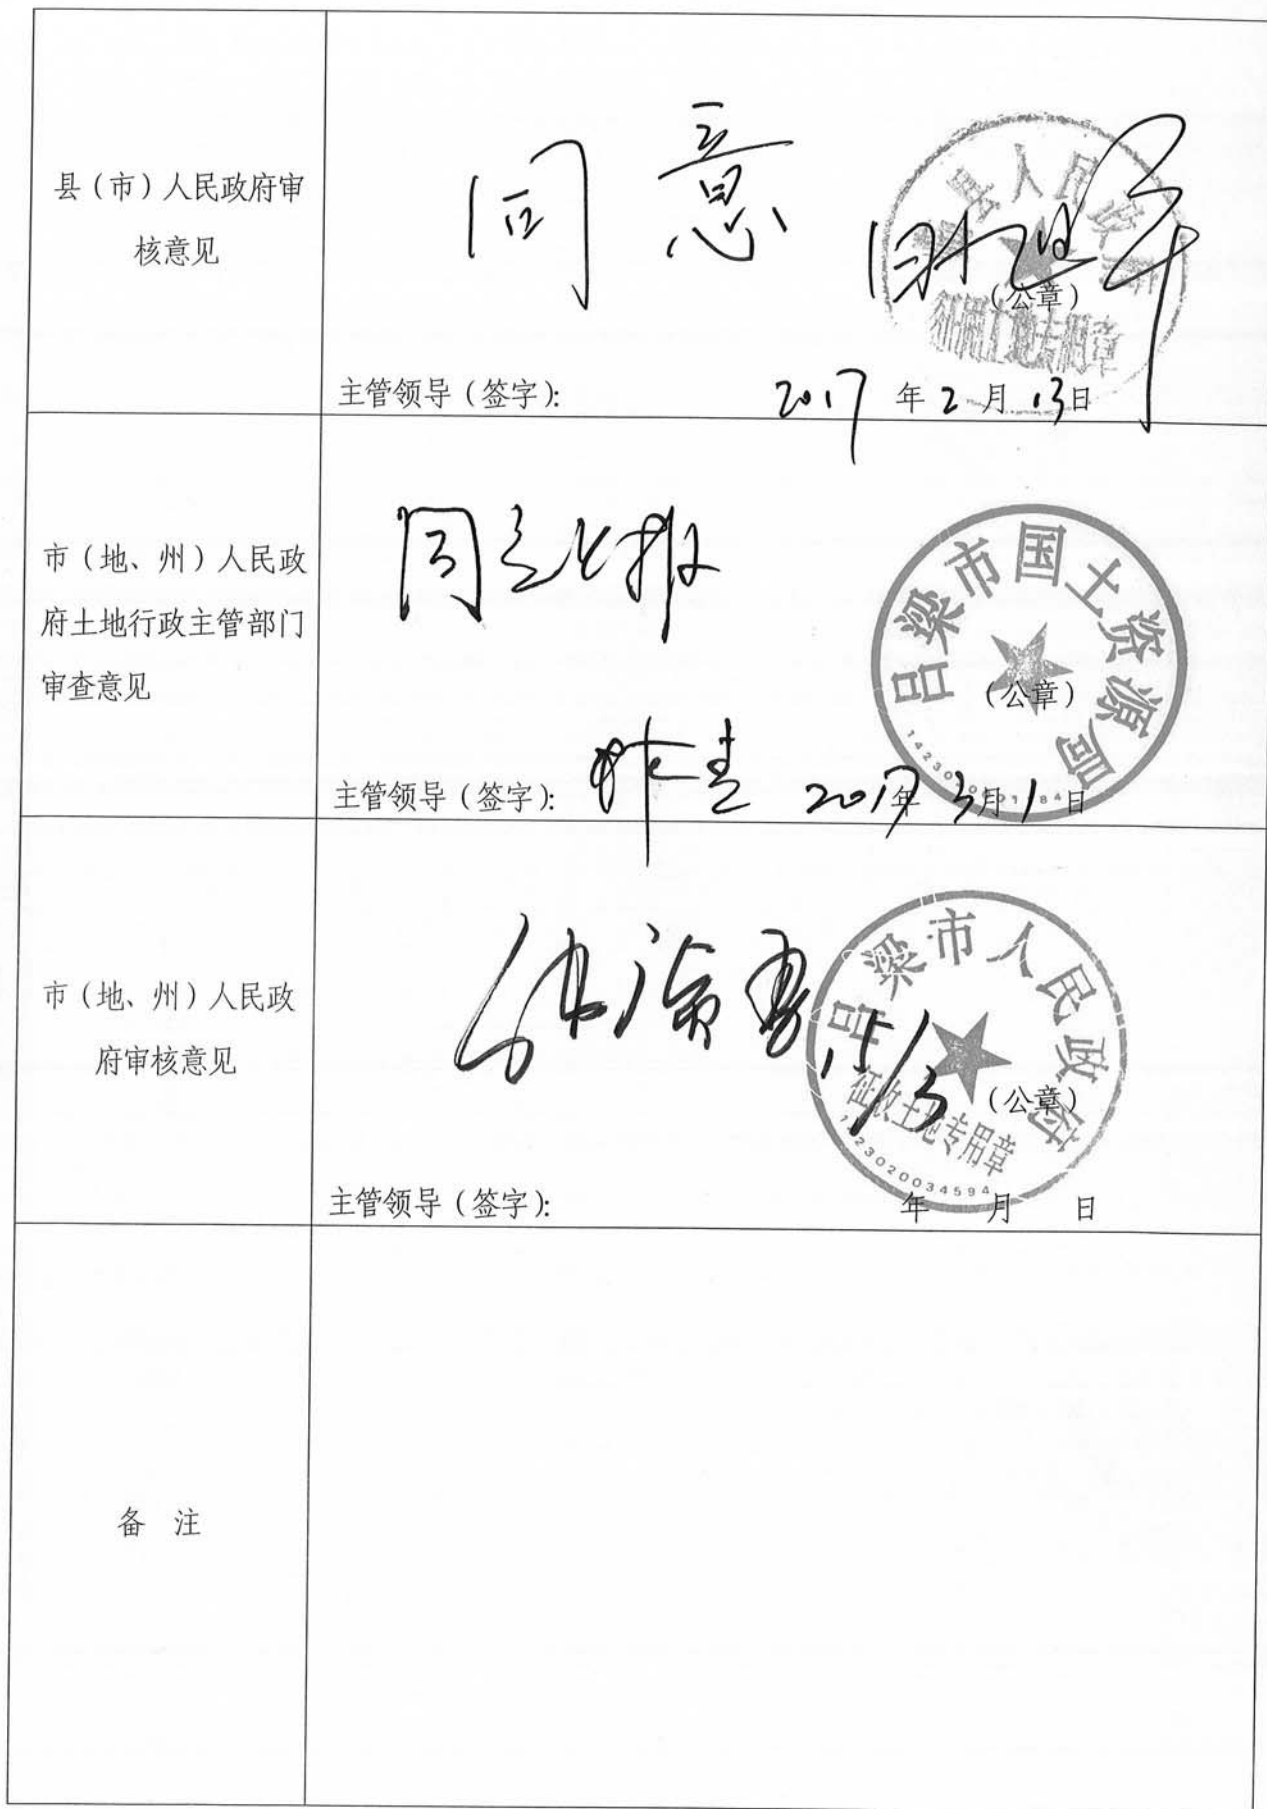 县（市）人民政府审
核意见
同意
人民政府
征用土地专用章
（公章）
主管领导（签字）：
2017年2月13日
市（地、州）人民政
府土地行政主管部门
审查意见
同意上报
吕梁市国土资源局
（公章）
主管领导（签字）：
2017年3月1日
市（地、州）人民政
府审核意见
15/3
吕梁市人民政府
征收土地专用章
（公章）
主管领导（签字）：
年 月 日
备 注